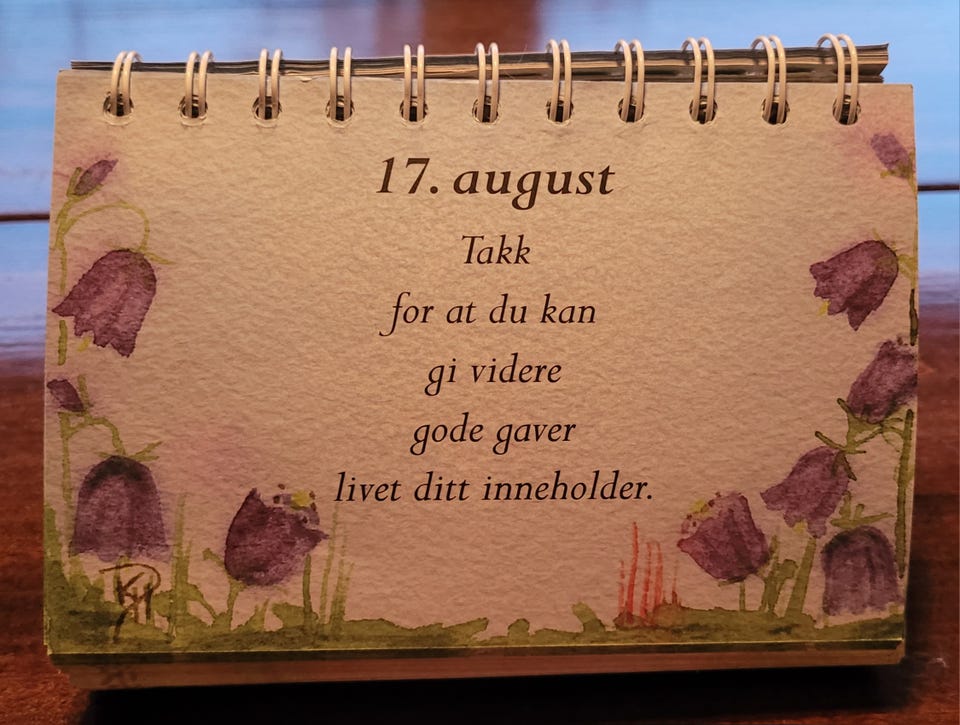 17. august
Takk
for at du kan
gi videre
gode gaver
livet ditt inneholder.